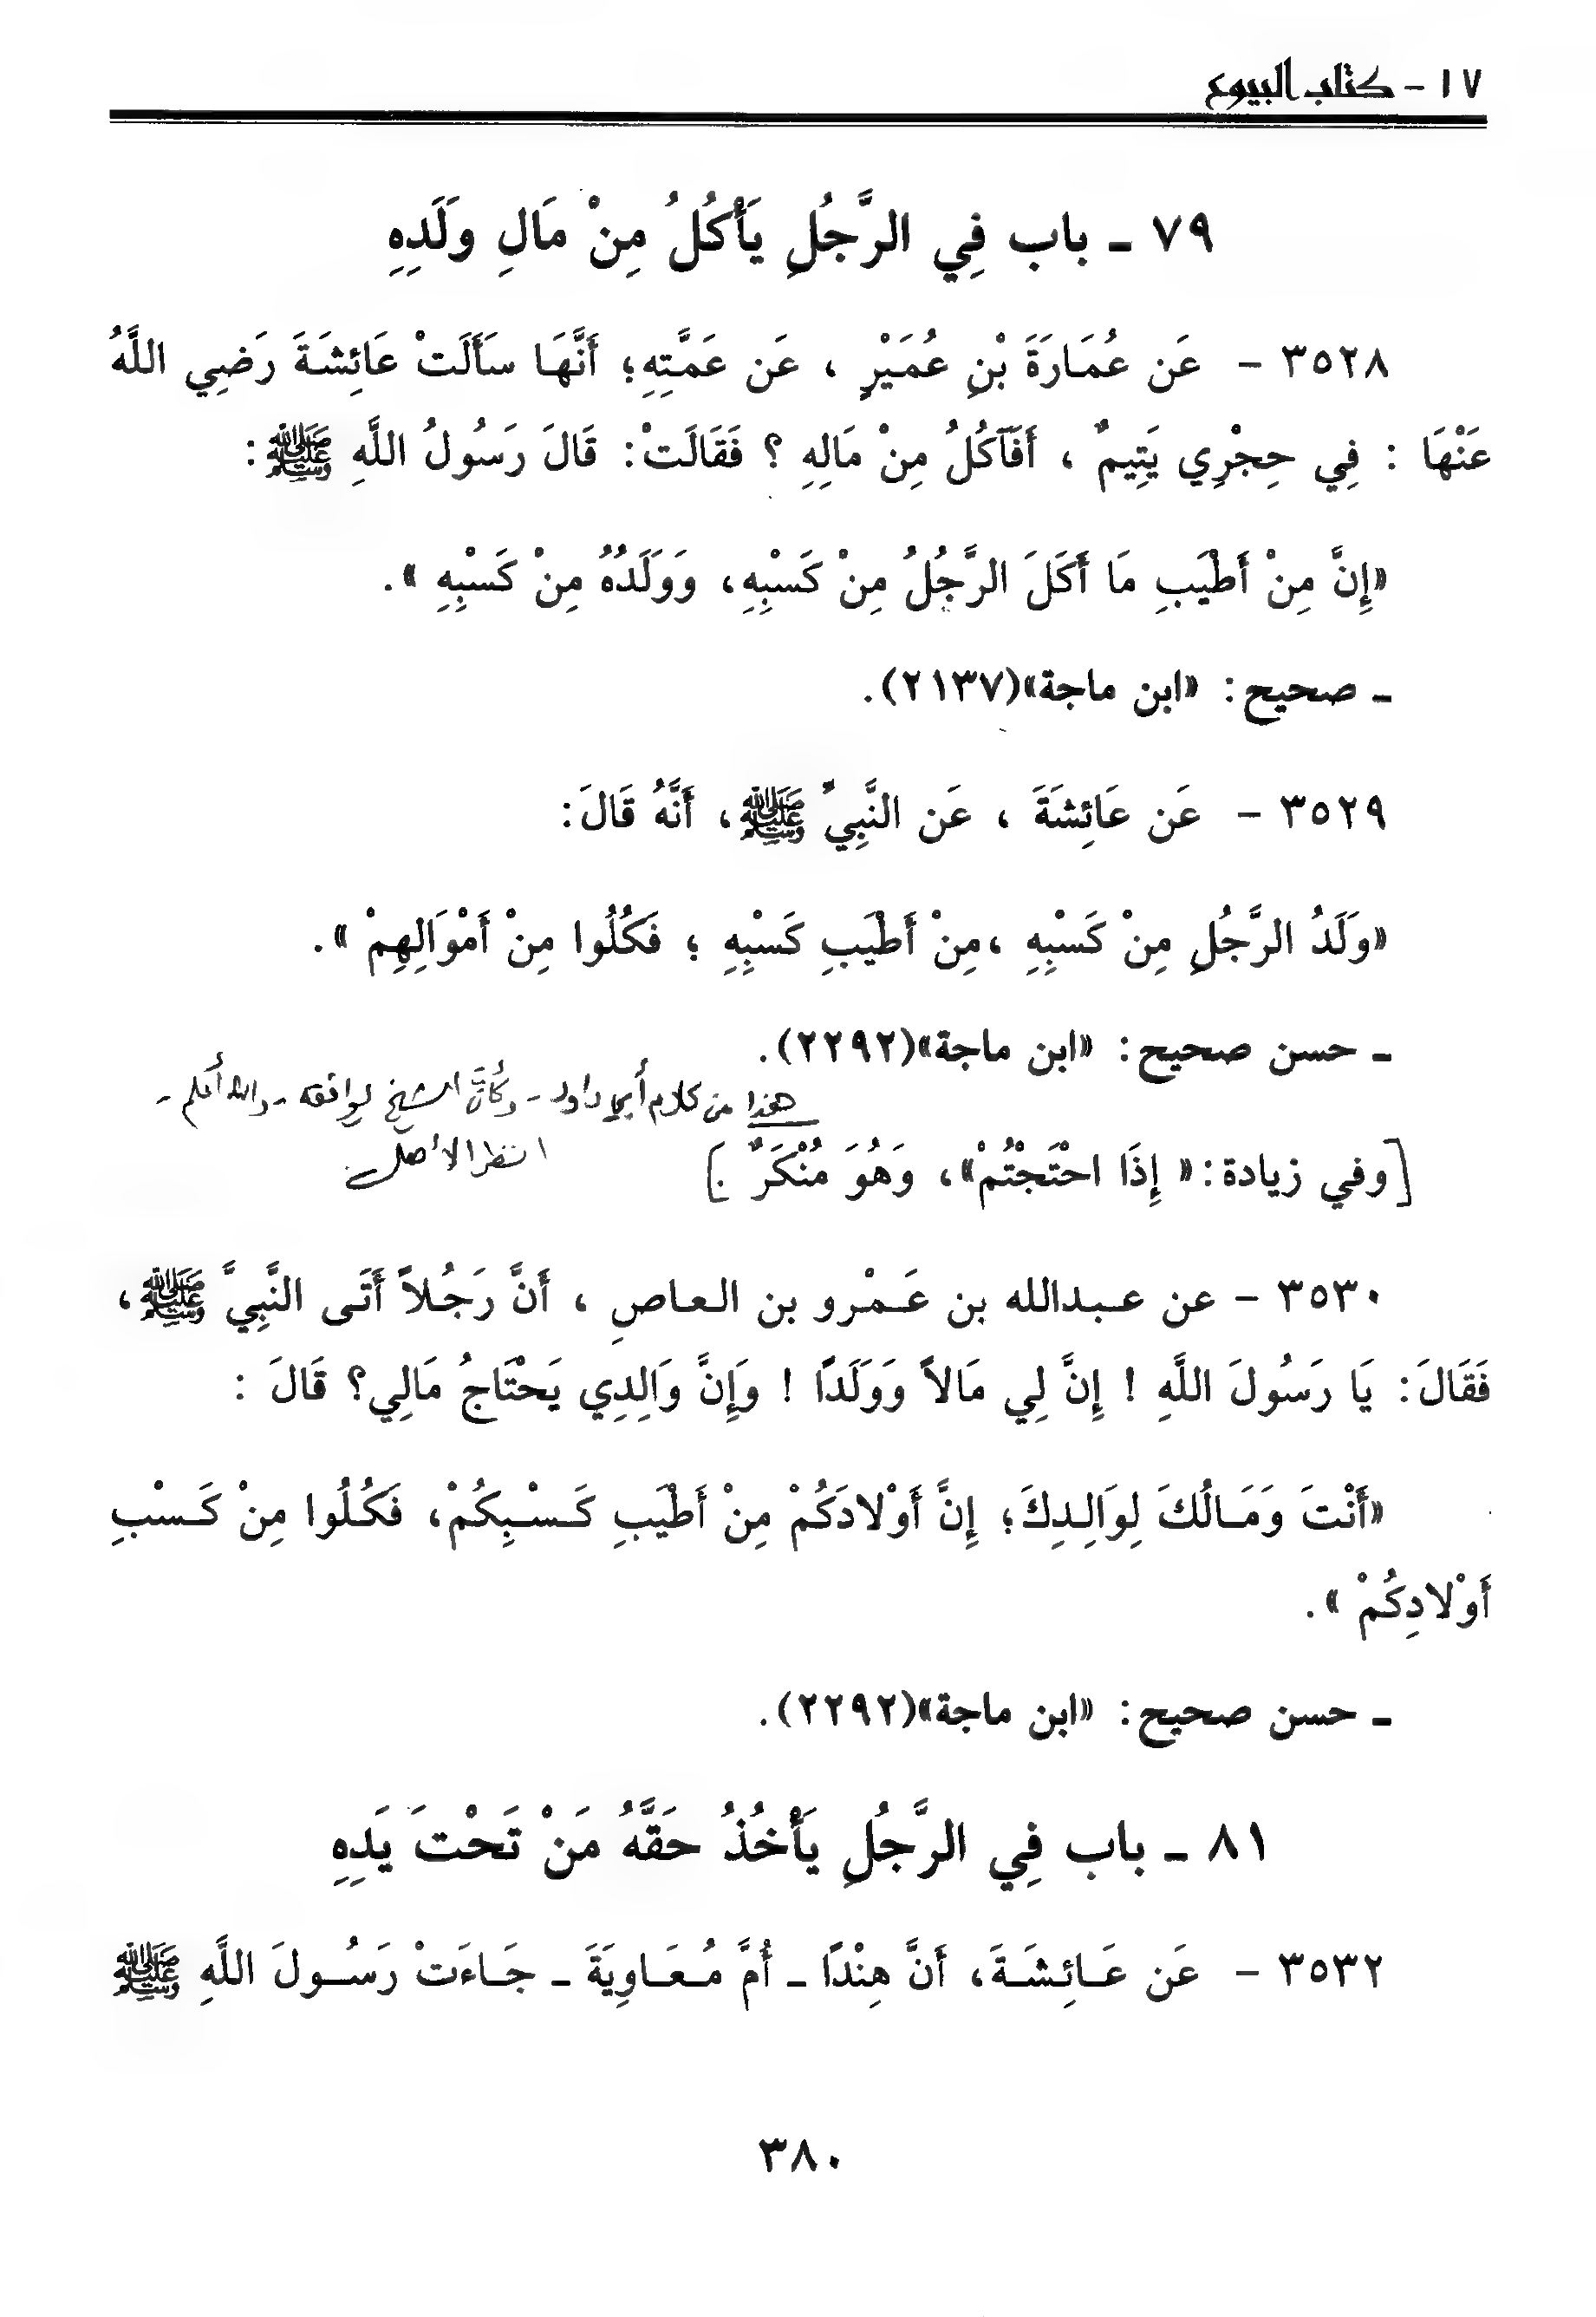 ١٧ - كتاب البيوع
٧٩ ـ باب فِي الرَّجُلِ يَأْكُلُ مِنْ مَالِ ولَدِهِ
٣٥٢٨ - عَن عُمَارَةَ بْنِ عُمَيْرٍ ، عَن عَمَّتِهِ؛ أَنَّهَا سَأَلَتْ عَائِشَةَ رَضِي اللَّهُ
عَنْهَا : فِي حِجْرِي يَتِيمٌ ، أَفَآكُلُ مِنْ مَالِهِ ؟ فَقَالَتْ: قَالَ رَسُولُ اللَّهِ ﷺ:
«إِنَّ مِنْ أَطْيَبِ مَا أَكَلَ الرَّجُلُ مِنْ كَسْبِهِ، وَوَلَدُهُ مِنْ كَسْبِهِ ».
ـ صحيح: «ابن ماجة»(٢١٣٧).
٣٥٢٩ - عَن عَائِشَةَ ، عَن النَّبِيِّ ﷺ، أَنَّهُ قَالَ:
«ولَدُ الرَّجُلِ مِنْ كَسْبِهِ ،مِنْ أَطْيَبِ كَسْبِهِ ؛ فَكُلُوا مِنْ أَمْوَالِهِمْ ».
ـ حسن صحيح: «ابن ماجة»(٢٢٩٢).
هذا من كلام أبي داود - وكأنَّ الشيخ يوافقه - والله أعلم -
انظر الأصل
[وفي زيادة:« إِذَا احْتَجْتُمْ»، وَهُوَ مُنْكَرٌ .]
٣٥٣٠ - عن عبدالله بن عَمْرو بن العاصِ ، أَنَّ رَجُلاً أَتَى النَّبِيَّ ﷺ،
فَقَالَ: يَا رَسُولَ اللَّهِ ! إِنَّ لِي مَالاً وَوَلَدًا ! وَإِنَّ وَالِدِي يَحْتَاجُ مَالِي؟ قَالَ :
«أَنْتَ وَمَالُكَ لِوَالِدِكَ؛ إِنَّ أَوْلادَكُمْ مِنْ أَطْيَبِ كَسْبِكُمْ، فَكُلُوا مِنْ كَسْبِ
أَوْلادِكُمْ ».
ـ حسن صحيح: «ابن ماجة»(٢٢٩٢).
٨١ ـ باب فِي الرَّجُلِ يَأْخُذُ حَقَّهُ مَنْ تَحْتَ يَدِهِ
٣٥٣٢ - عَن عَائِشَةَ، أَنَّ هِنْدًا ـ أُمَّ مُعَاوِيَةَ ـ جَاءَتْ رَسُولَ اللَّهِ ﷺ
٣٨٠